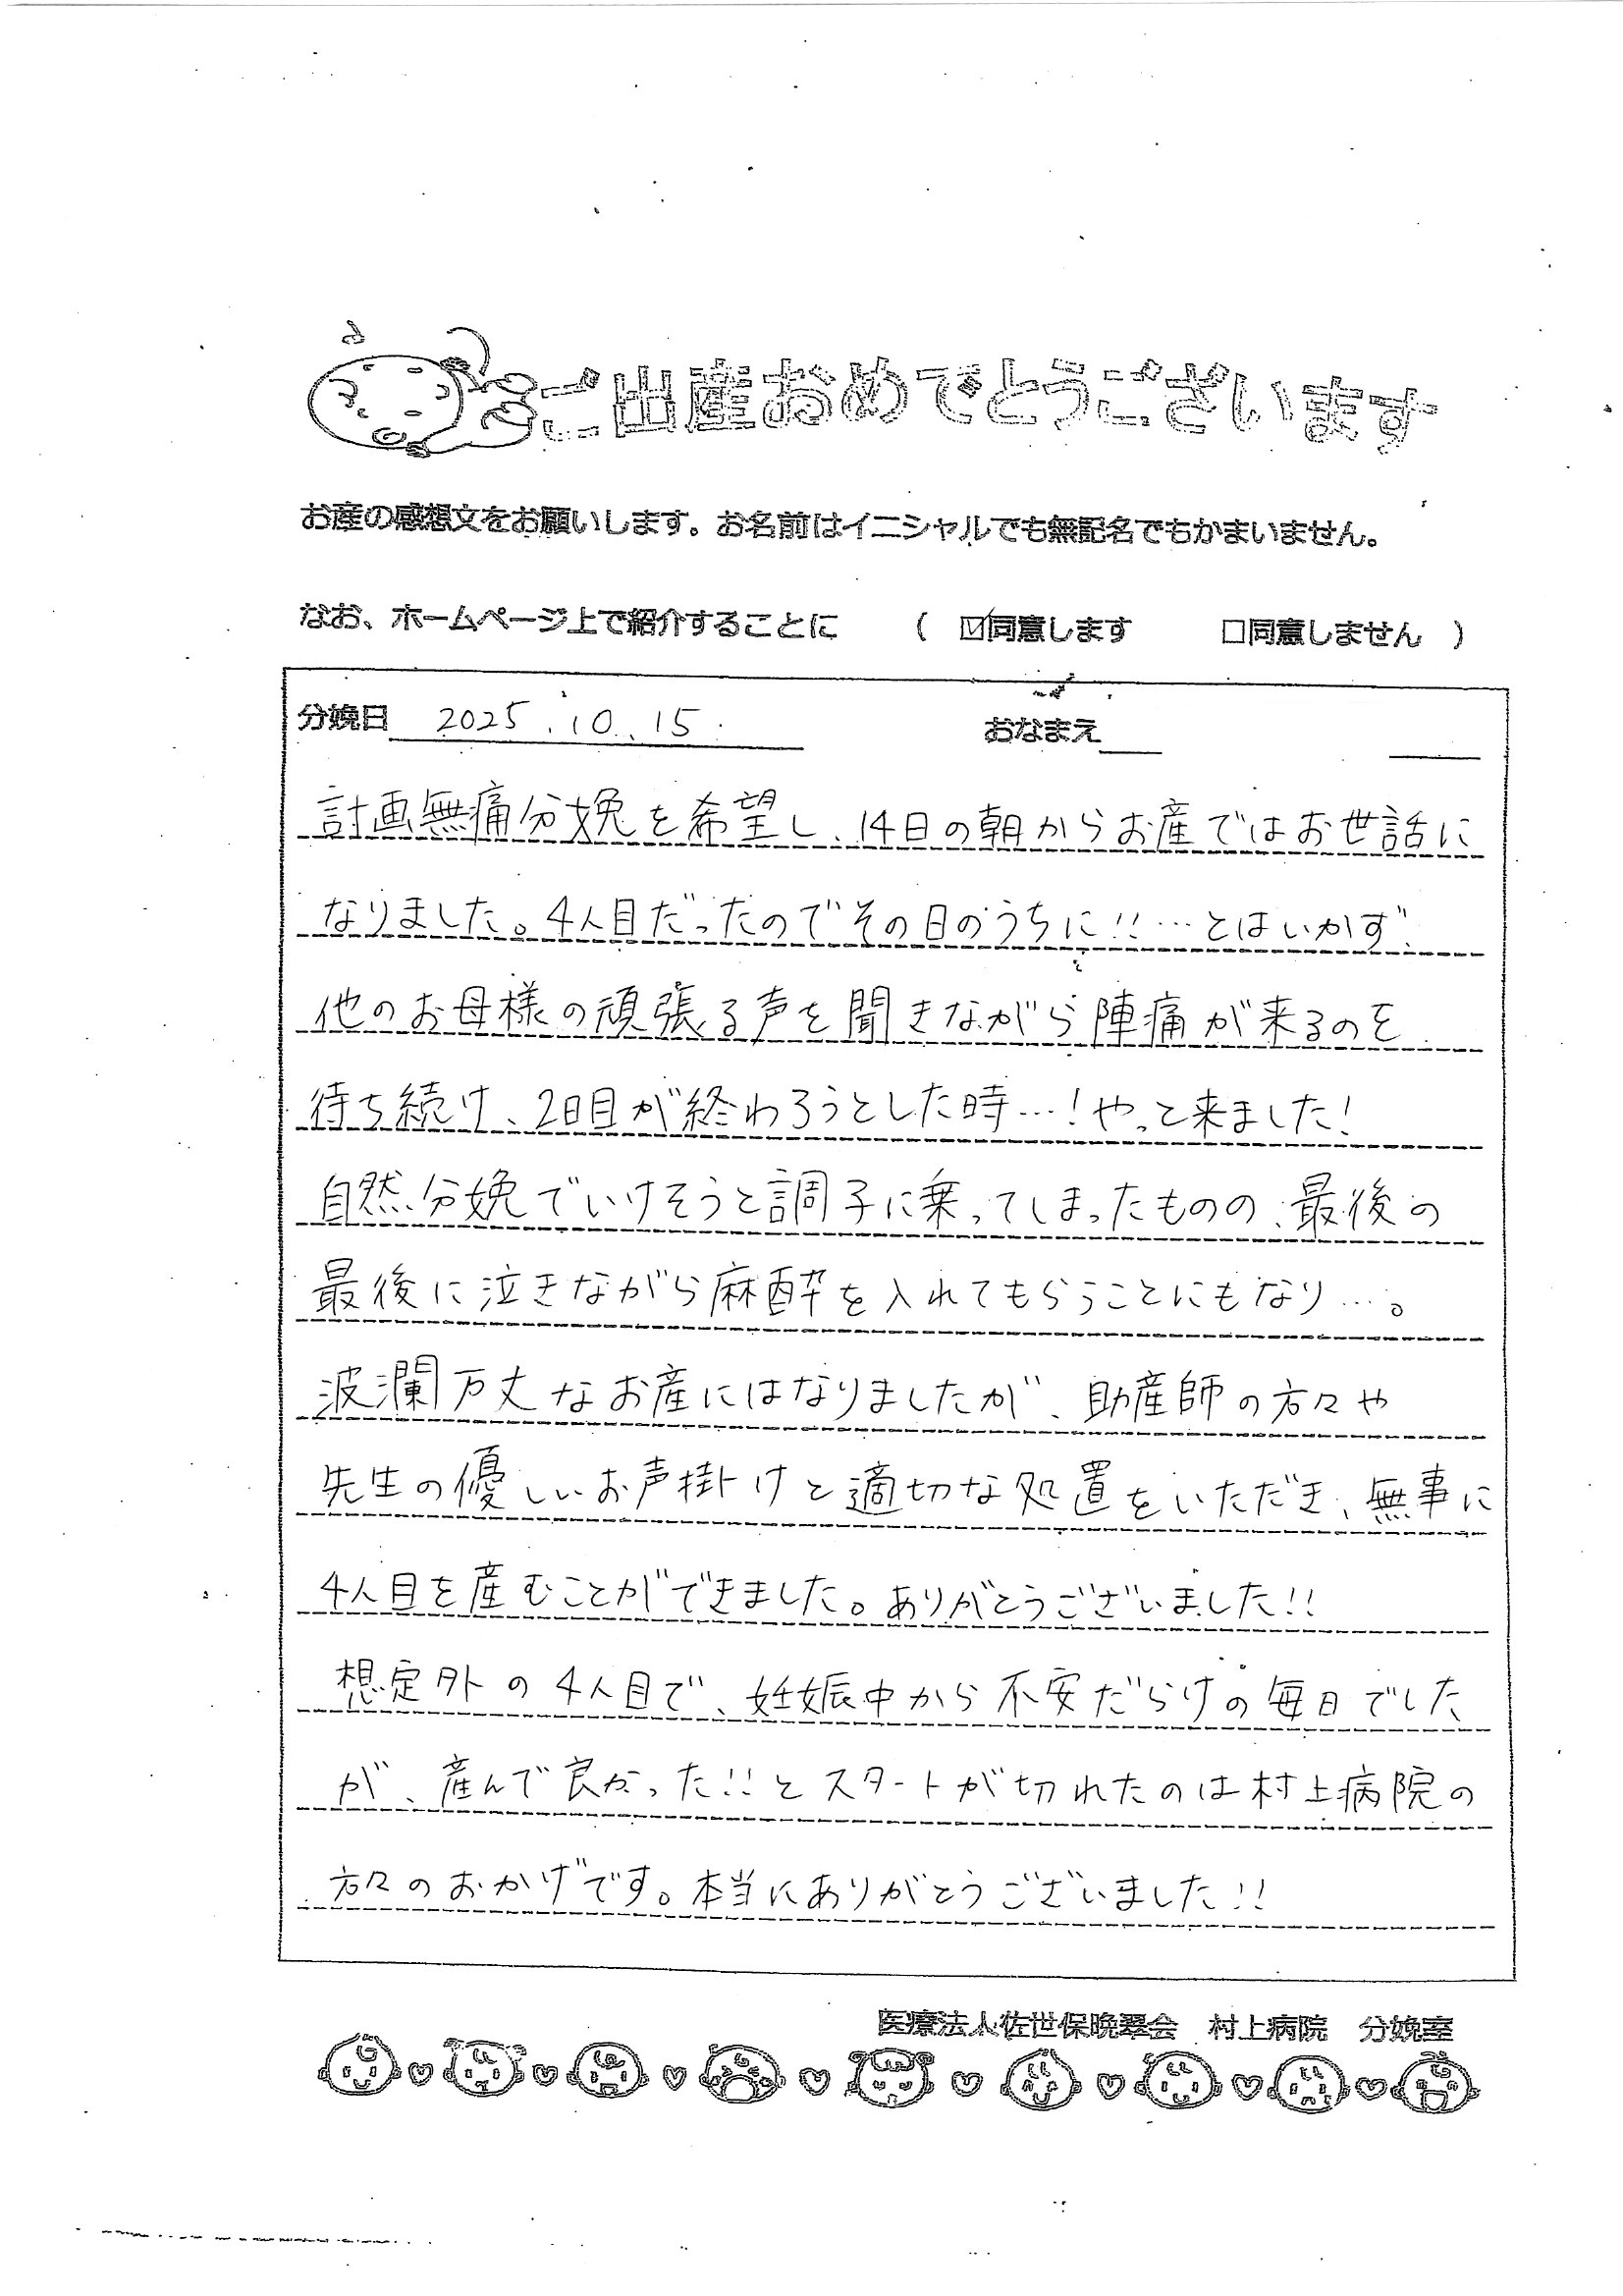 ご出産おめでとうございます
お産の感想文をお願いします。お名前はイニシャルでも無記名でもかまいません。
なお、ホームページ上で紹介することに （ ☑同意します □同意しません ）
分娩日 2025.10.15 おなまえ
計画無痛分娩を希望し、14日の朝からお産ではお世話に
なりました。4人目だったのでその日のうちに!!…とはいかず
他のお母様の頑張る声を聞きながら陣痛が来るのを
待ち続け、2日目が終わろうとした時…!やっと来ました!
自然分娩でいけそうと調子に乗ってしまったものの、最後の
最後に泣きながら麻酔を入れてもらうことにもなり…。
波瀾万丈なお産にはなりましたが、助産師の方々や
先生の優しいお声掛けと適切な処置をいただき、無事に
4人目を産むことができました。ありがとうございました!!
想定外の4人目で、妊娠中から不安だらけの毎日でした
が、産んで良かった!!とスタートが切れたのは村上病院の
方々のおかげです。本当にありがとうございました!!
医療法人佐世保晩翠会 村上病院 分娩室